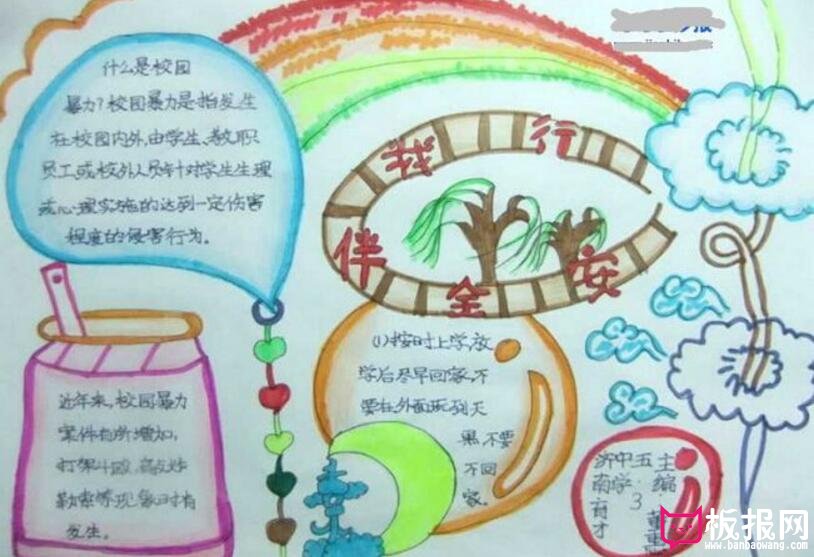 什么是校园
暴力?校园暴力是指发生
在校园内外,由学生、教职
员工或校外人员针对学生生理
或心理实施的达到一定伤害
程度的侵害行为。
安全伴我行
近年来,校园暴力
案件有所增加,
打架斗殴、敲诈
勒索等现象时有
发生。
(1)按时上学,放
学后尽早回家,不
要在外面玩到天
黑,不要
不回
家。
主编
五·3
中学
济南育才
板报网
www.banbaowang.com